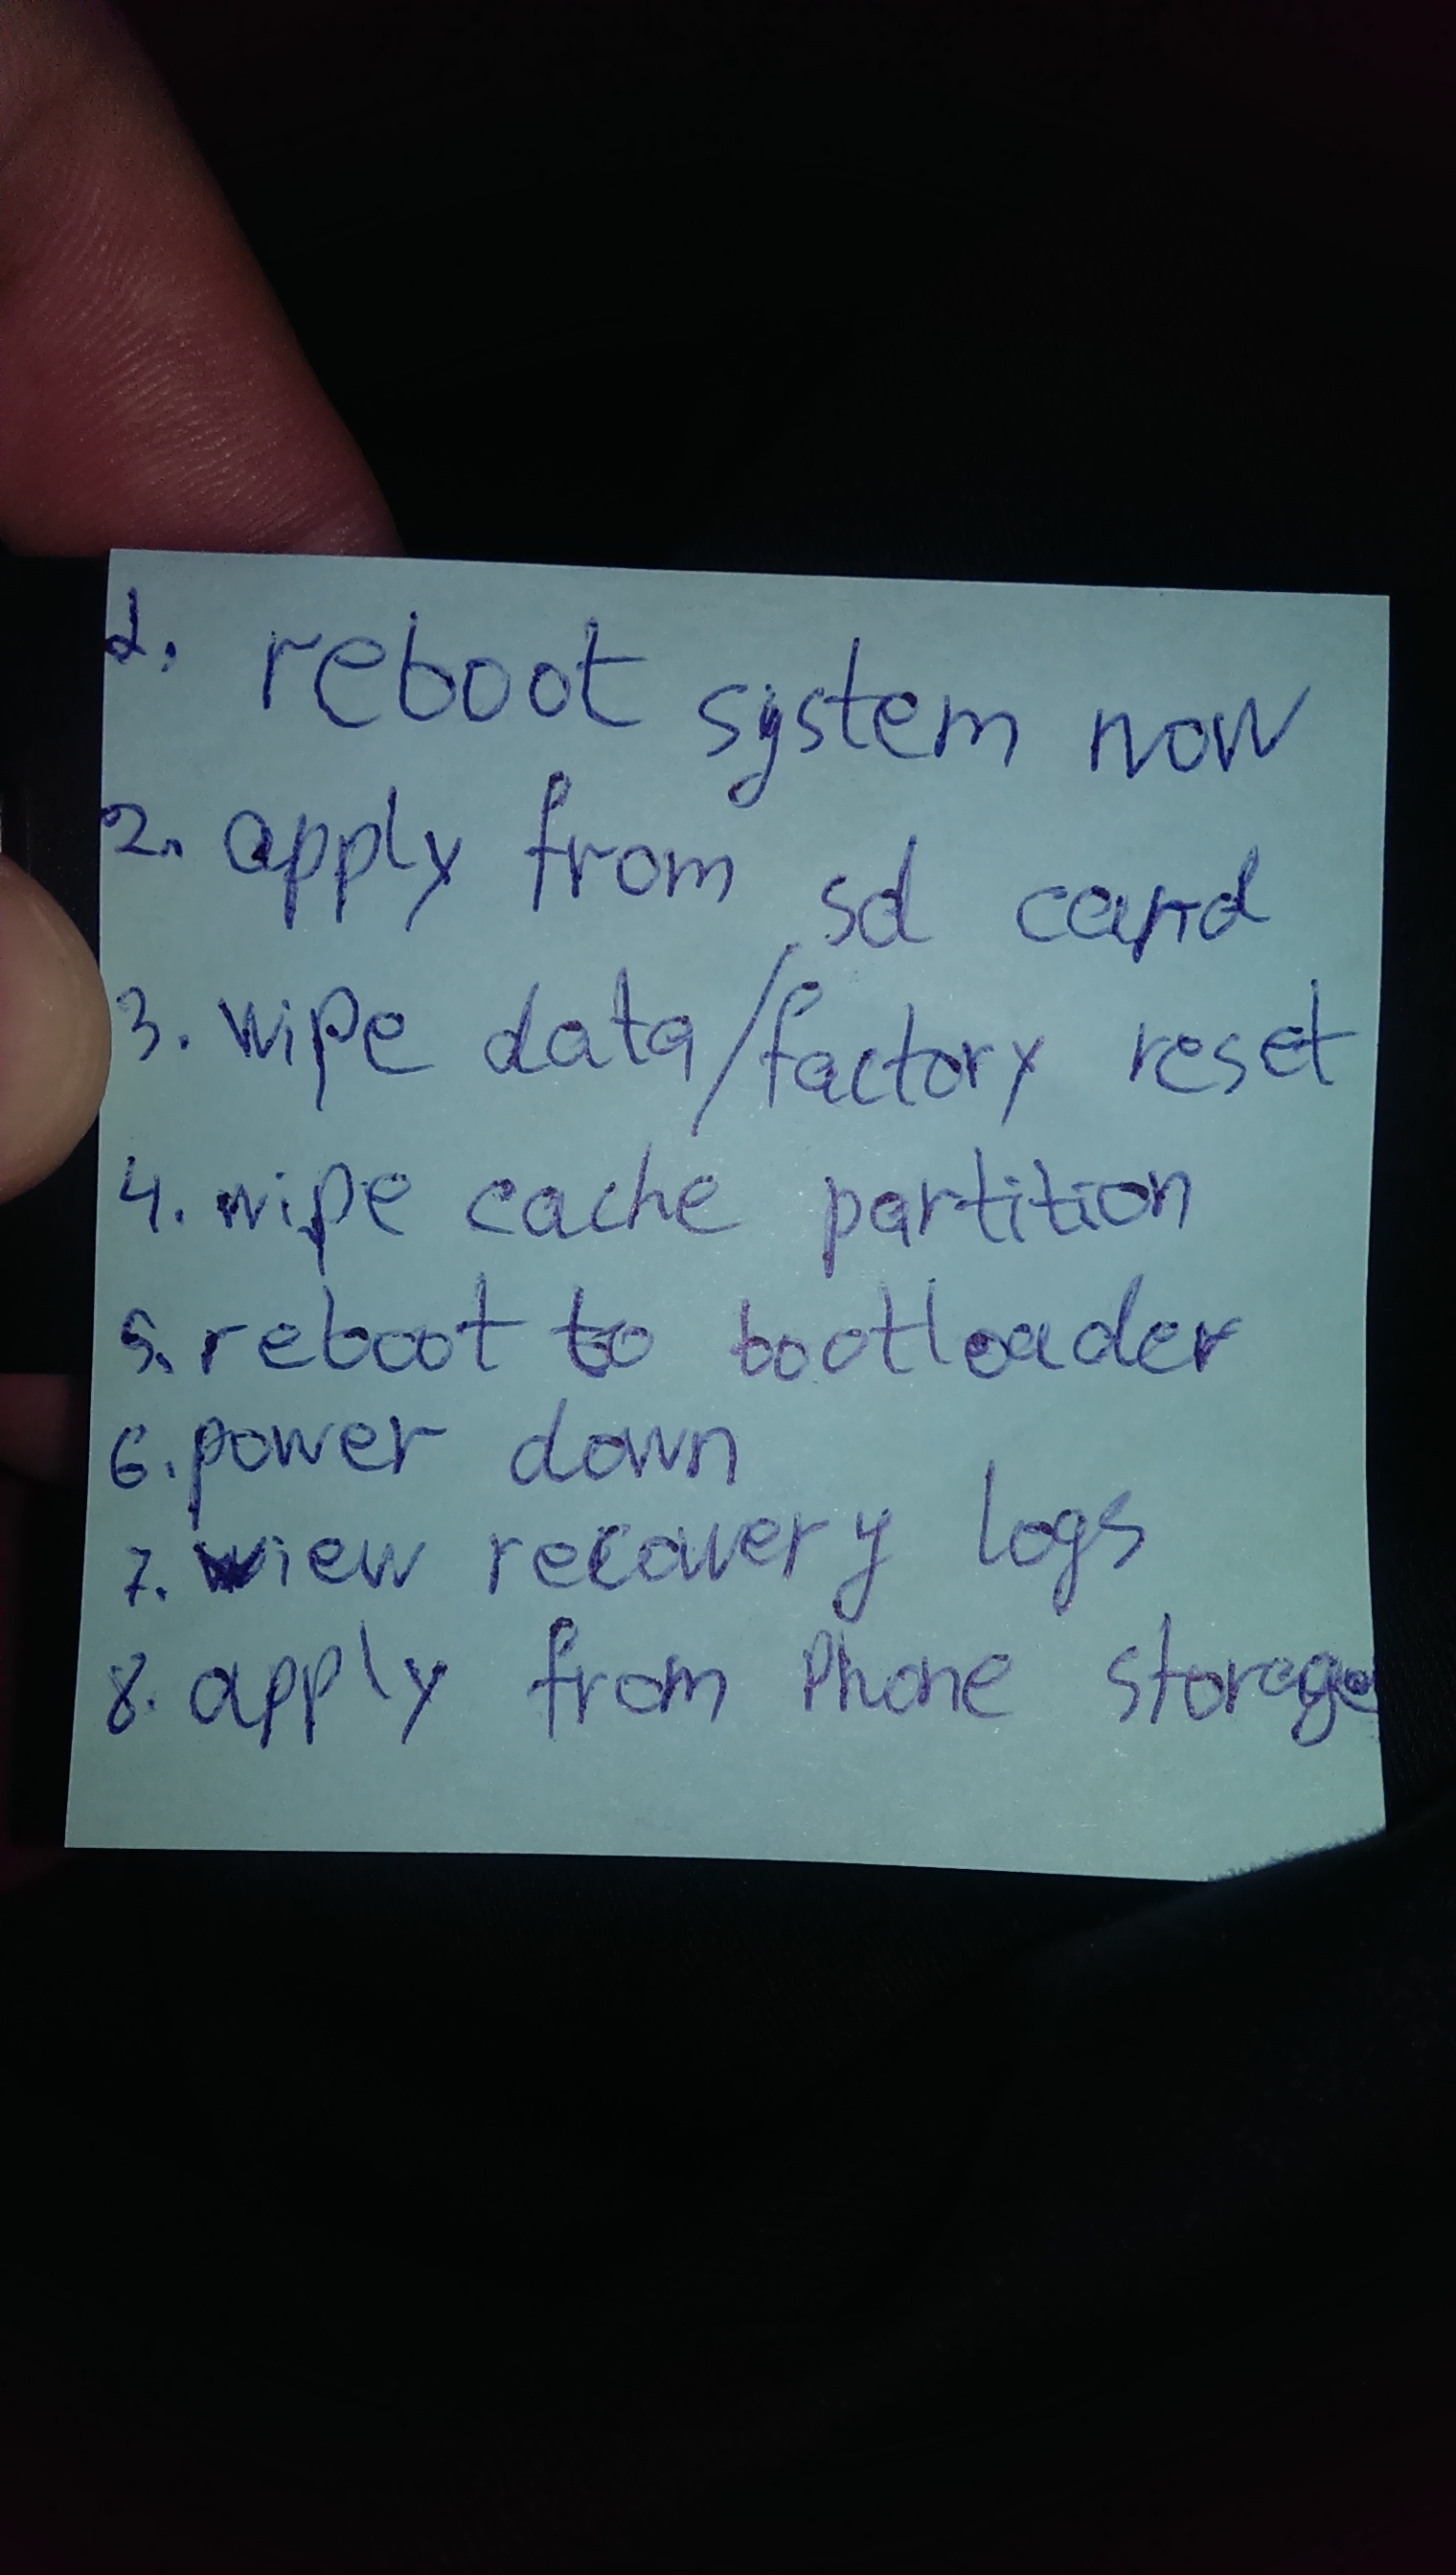 1. reboot system now
2. apply from sd card
3. wipe data/factory reset
4. wipe cache partition
5. reboot to bootloader
6. power down
7. view recovery logs
8. apply from Phone storage